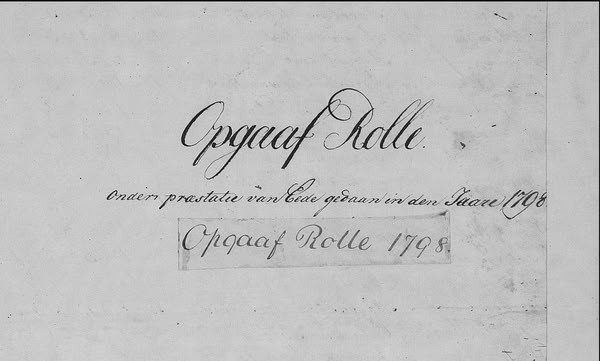 Opgaaf Rolle.
onder præstatie van Eede gedaan in den Jaare 1798
Opgaaf Rolle 1798.